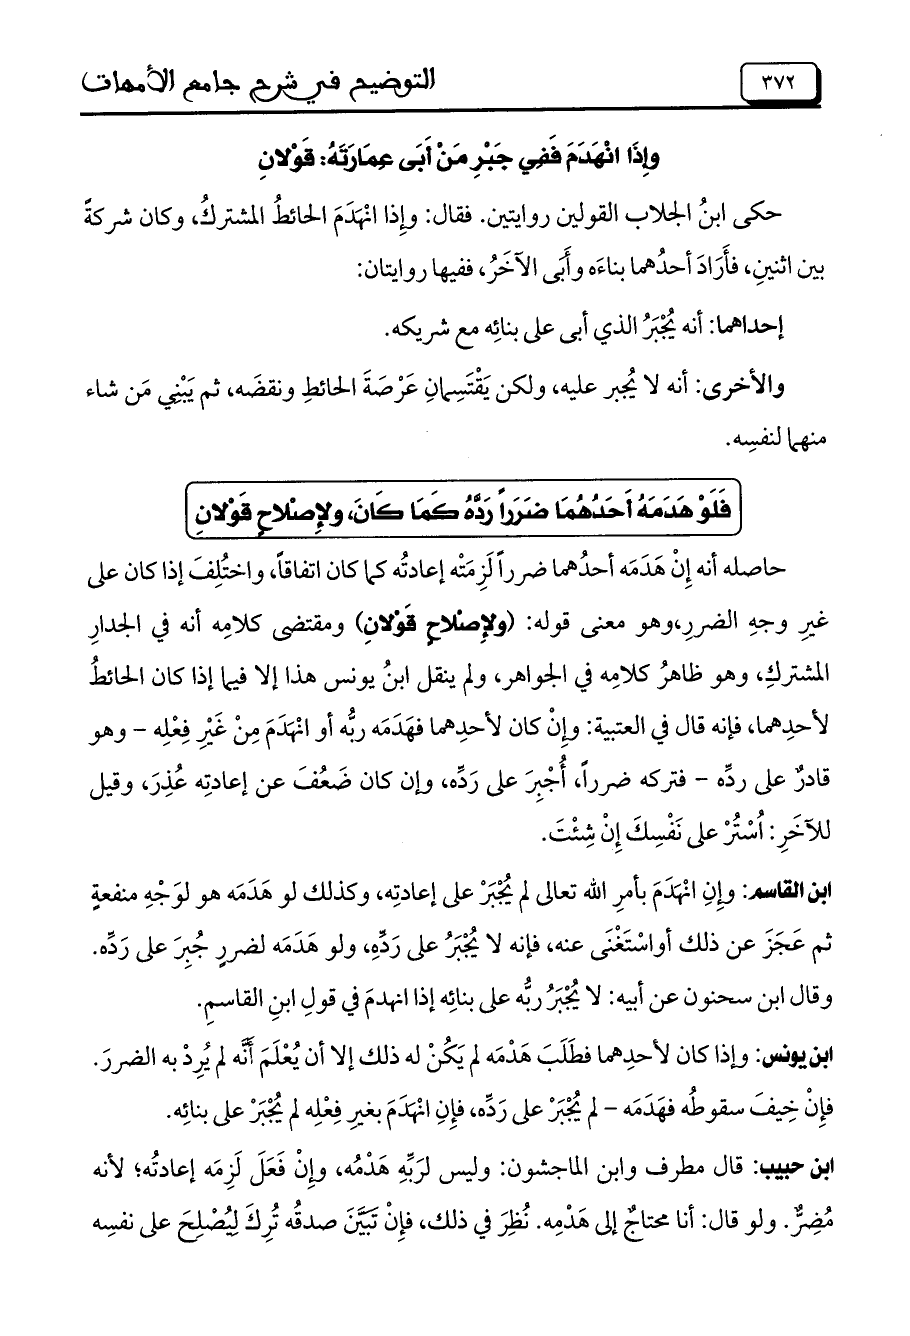 ٣٧٢
التوضيح في شرح جامع الأمهات
وإِذَا انْهَدَمَ فَفِي جَبْرِ مَنْ أَبَى عِمَارَتَهُ: قَوْلانِ
حكى ابنُ الجلاب القولين روايتين. فقال: وإِذا انْهَدَمَ الحائطُ المشتركُ، وكان شركةً
بين اثنينِ، فأَرَادَ أحدُهما بناءَه وأَبَى الآخَرُ، ففيها روايتان:
إحداهما: أنه يُجْبَرُ الذي أبى على بنائِه مع شريكه.
والأخرى: أنه لا يُجبر عليه، ولكن يَقْتَسِمانِ عَرْصَةَ الحائطِ ونقضَه، ثم يَبْنِي مَن شاء
منهما لنفسِه.
فَلَوْ هَدَمَهُ أَحَدُهُمَا ضَرَراً رَدَّهُ كَمَا كَانَ، ولإِصْلاحٍ قَوْلانِ
حاصله أنه إِنْ هَدَمَه أحدُهما ضرراً لَزِمَتْه إعادتُه كما كان اتفاقاً، واختُلِفَ إذا كان على
غيرِ وجهِ الضررِ،وهو معنى قوله: (ولإِصْلاحٍ قَوْلانِ) ومقتضى كلامِه أنه في الجدارِ
المشتركِ، وهو ظاهرُ كلامِه في الجواهر، ولم ينقل ابنُ يونس هذا إلا فيما إذا كان الحائطُ
لأحدِهما، فإنه قال في العتبية: وإِنْ كان لأحدِهما فهَدَمَه ربُّه أو انْهَدَمَ مِنْ غَيْرِ فِعْلِه – وهو
قادرٌ على ردِّه – فتركه ضرراً، أُجْبِرَ على رَدِّه، وإن كان ضَعُفَ عن إعادتِه عُذِرَ، وقيل
للآخَرِ: اُسْتُرْ على نَفْسِكَ إِنْ شِئْتَ.
ابن القاسم: وإِنِ انْهَدَمَ بأمرِ الله تعالى لم يُجْبَرْ على إعادتِه، وكذلك لو هَدَمَه هو لوَجْهِ منفعةٍ
ثم عَجَزَ عن ذلك أواسْتَغْنَى عنه، فإنه لا يُجْبَرُ على رَدِّهِ، ولو هَدَمَه لضررٍ جُبِرَ على رَدِّه.
وقال ابن سحنون عن أبيه: لا يُجْبَرُ ربُّه على بنائِه إذا انهدمَ في قولِ ابنِ القاسمِ.
ابن يونس: وإذا كان لأحدِهما فطَلَبَ هَدْمَه لم يَكُنْ له ذلك إلا أن يُعْلَمَ أَنَّه لم يُرِدْ به الضررَ.
فإِنْ خِيفَ سقوطُه فهَدَمَه – لم يُجْبَرْ على رَدِّه، فإنِ انْهَدَمَ بغيرِ فِعْلِه لم يُجْبَرْ على بنائِه.
ابن حبيب: قال مطرف وابن الماجشون: وليس لرَبِّه هَدْمُه، وإِنْ فَعَلَ لَزِمَه إعادتُه؛ لأنه
مُضِرٌّ. ولو قال: أنا محتاجٌ إلى هَدْمِه. نُظِرَ في ذلك، فإنْ تَبَيَّنَ صدقُه تُرِكَ لِيُصْلِحَ على نفسِه